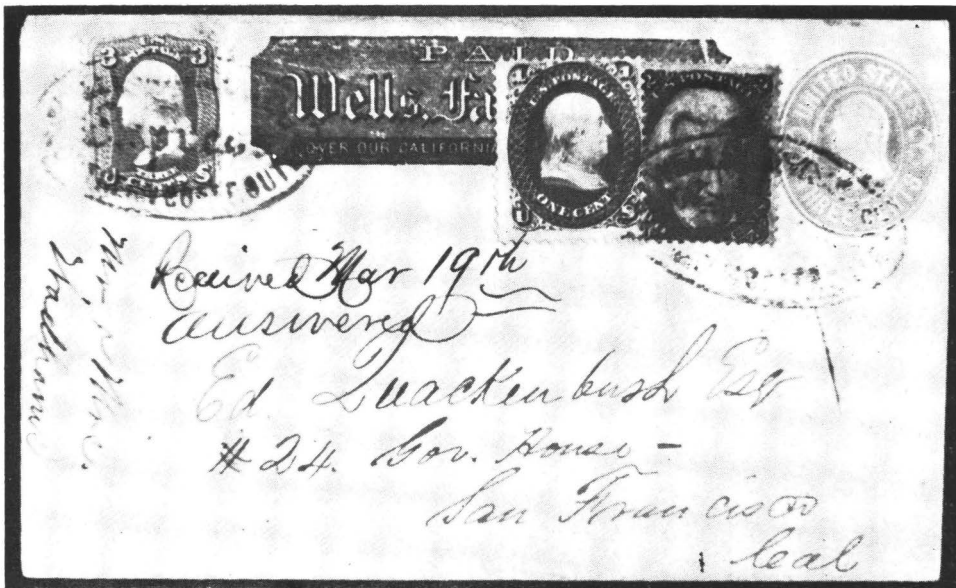 PAID
Wells, Fa
OVER OUR CALIFORNIA
3 3
U S
U.S. POSTAGE
ONE CENT
U S
U.S. POSTAGE
UNITED STATES
THREE CENTS
Received Mar 19th
answered
Ed Quackenbush Esq
#24. Gov. House -
San Francisco
Cal
Mr & Mrs.